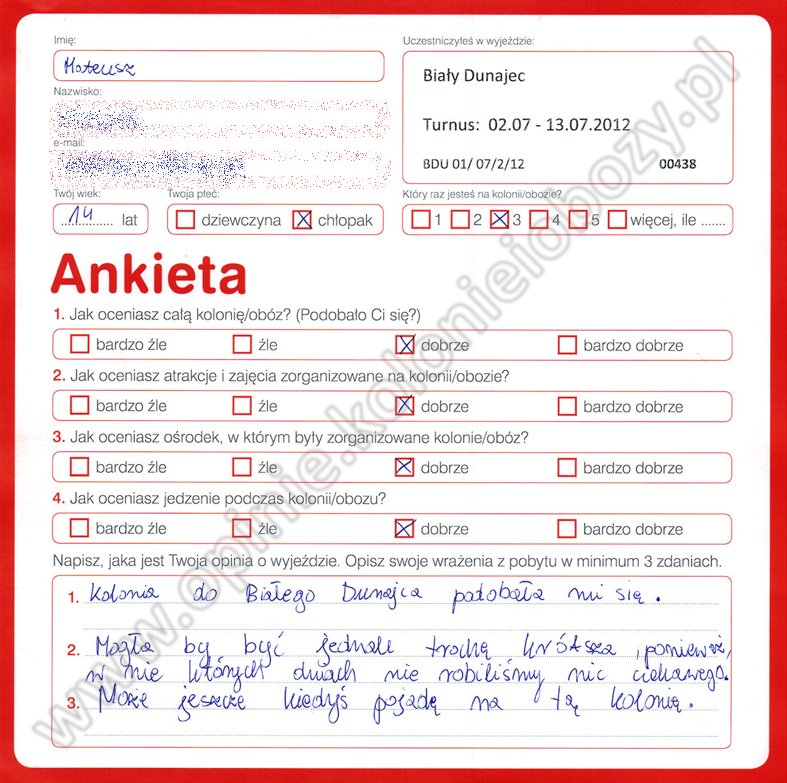 Imię:
Mateusz
Uczestniczyłeś w wyjeździe:
Biały Dunajec
Turnus: 02.07 - 13.07.2012
BDU 01/ 07/2/12 00438
Nazwisko:
e-mail:
Twój wiek:
14 lat
Twoja płeć:
dziewczyna chłopak
Który raz jesteś na kolonii/obozie?
1 2 3 4 5 więcej, ile .......
Ankieta
1. Jak oceniasz całą kolonię/obóz? (Podobało Ci się?)
bardzo źle źle dobrze bardzo dobrze
2. Jak oceniasz atrakcje i zajęcia zorganizowane na kolonii/obozie?
bardzo źle źle dobrze bardzo dobrze
3. Jak oceniasz ośrodek, w którym były zorganizowane kolonie/obóz?
bardzo źle źle dobrze bardzo dobrze
4. Jak oceniasz jedzenie podczas kolonii/obozu?
bardzo źle źle dobrze bardzo dobrze
Napisz, jaka jest Twoja opinia o wyjeździe. Opisz swoje wrażenia z pobytu w minimum 3 zdaniach.
1. Kolonia do Białego Dunajca podobała mi się.
2. Mogła by być jednak trochę krótsza, ponieważ,
w nie których dniach nie robiliśmy nic ciekawego.
3. Może jeszcze kiedyś pojadę na tą kolonię.
www.opinie.kolonieiobozy.pl